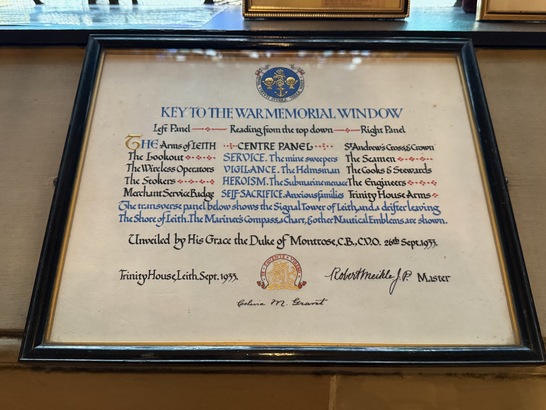 KEY TO THE WAR MEMORIAL WINDOW
Left Panel Reading from the top down Right Panel
THE Arms of LEITH CENTRE PANEL St Andrew's Cross & Crown
The Lookout SERVICE. The mine sweepers The Seamen
The Wireless Operators VIGILANCE. The Helmsman The Cooks & Stewards
The Stokers HEROISM. The Submarine menace The Engineers
Merchant Service Badge SELF-SACRIFICE. Anxious families Trinity House Arms
The transverse panel below shows the Signal Tower of Leith, and a drifter leaving
The Shore of Leith. The Mariner's Compass, a Chart, & other Nautical Emblems are shown.
Unveiled by His Grace the Duke of Montrose, C.B., C.V.O. 26th Sept. 1933.
Trinity House, Leith, Sept. 1933. Robert Meikle J.P. Master
M. Grant